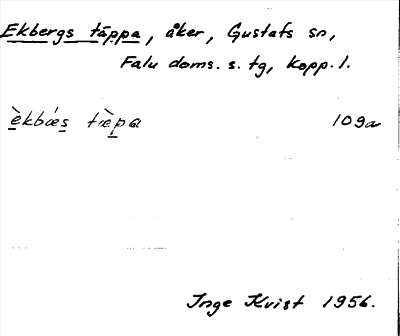 Ekbergs täppa, åker, Gustafs sn,
Falu doms. s. tg, Kopp. l.
èkbæ̀s tæ̀pa 109a
Inge Kvist 1956.